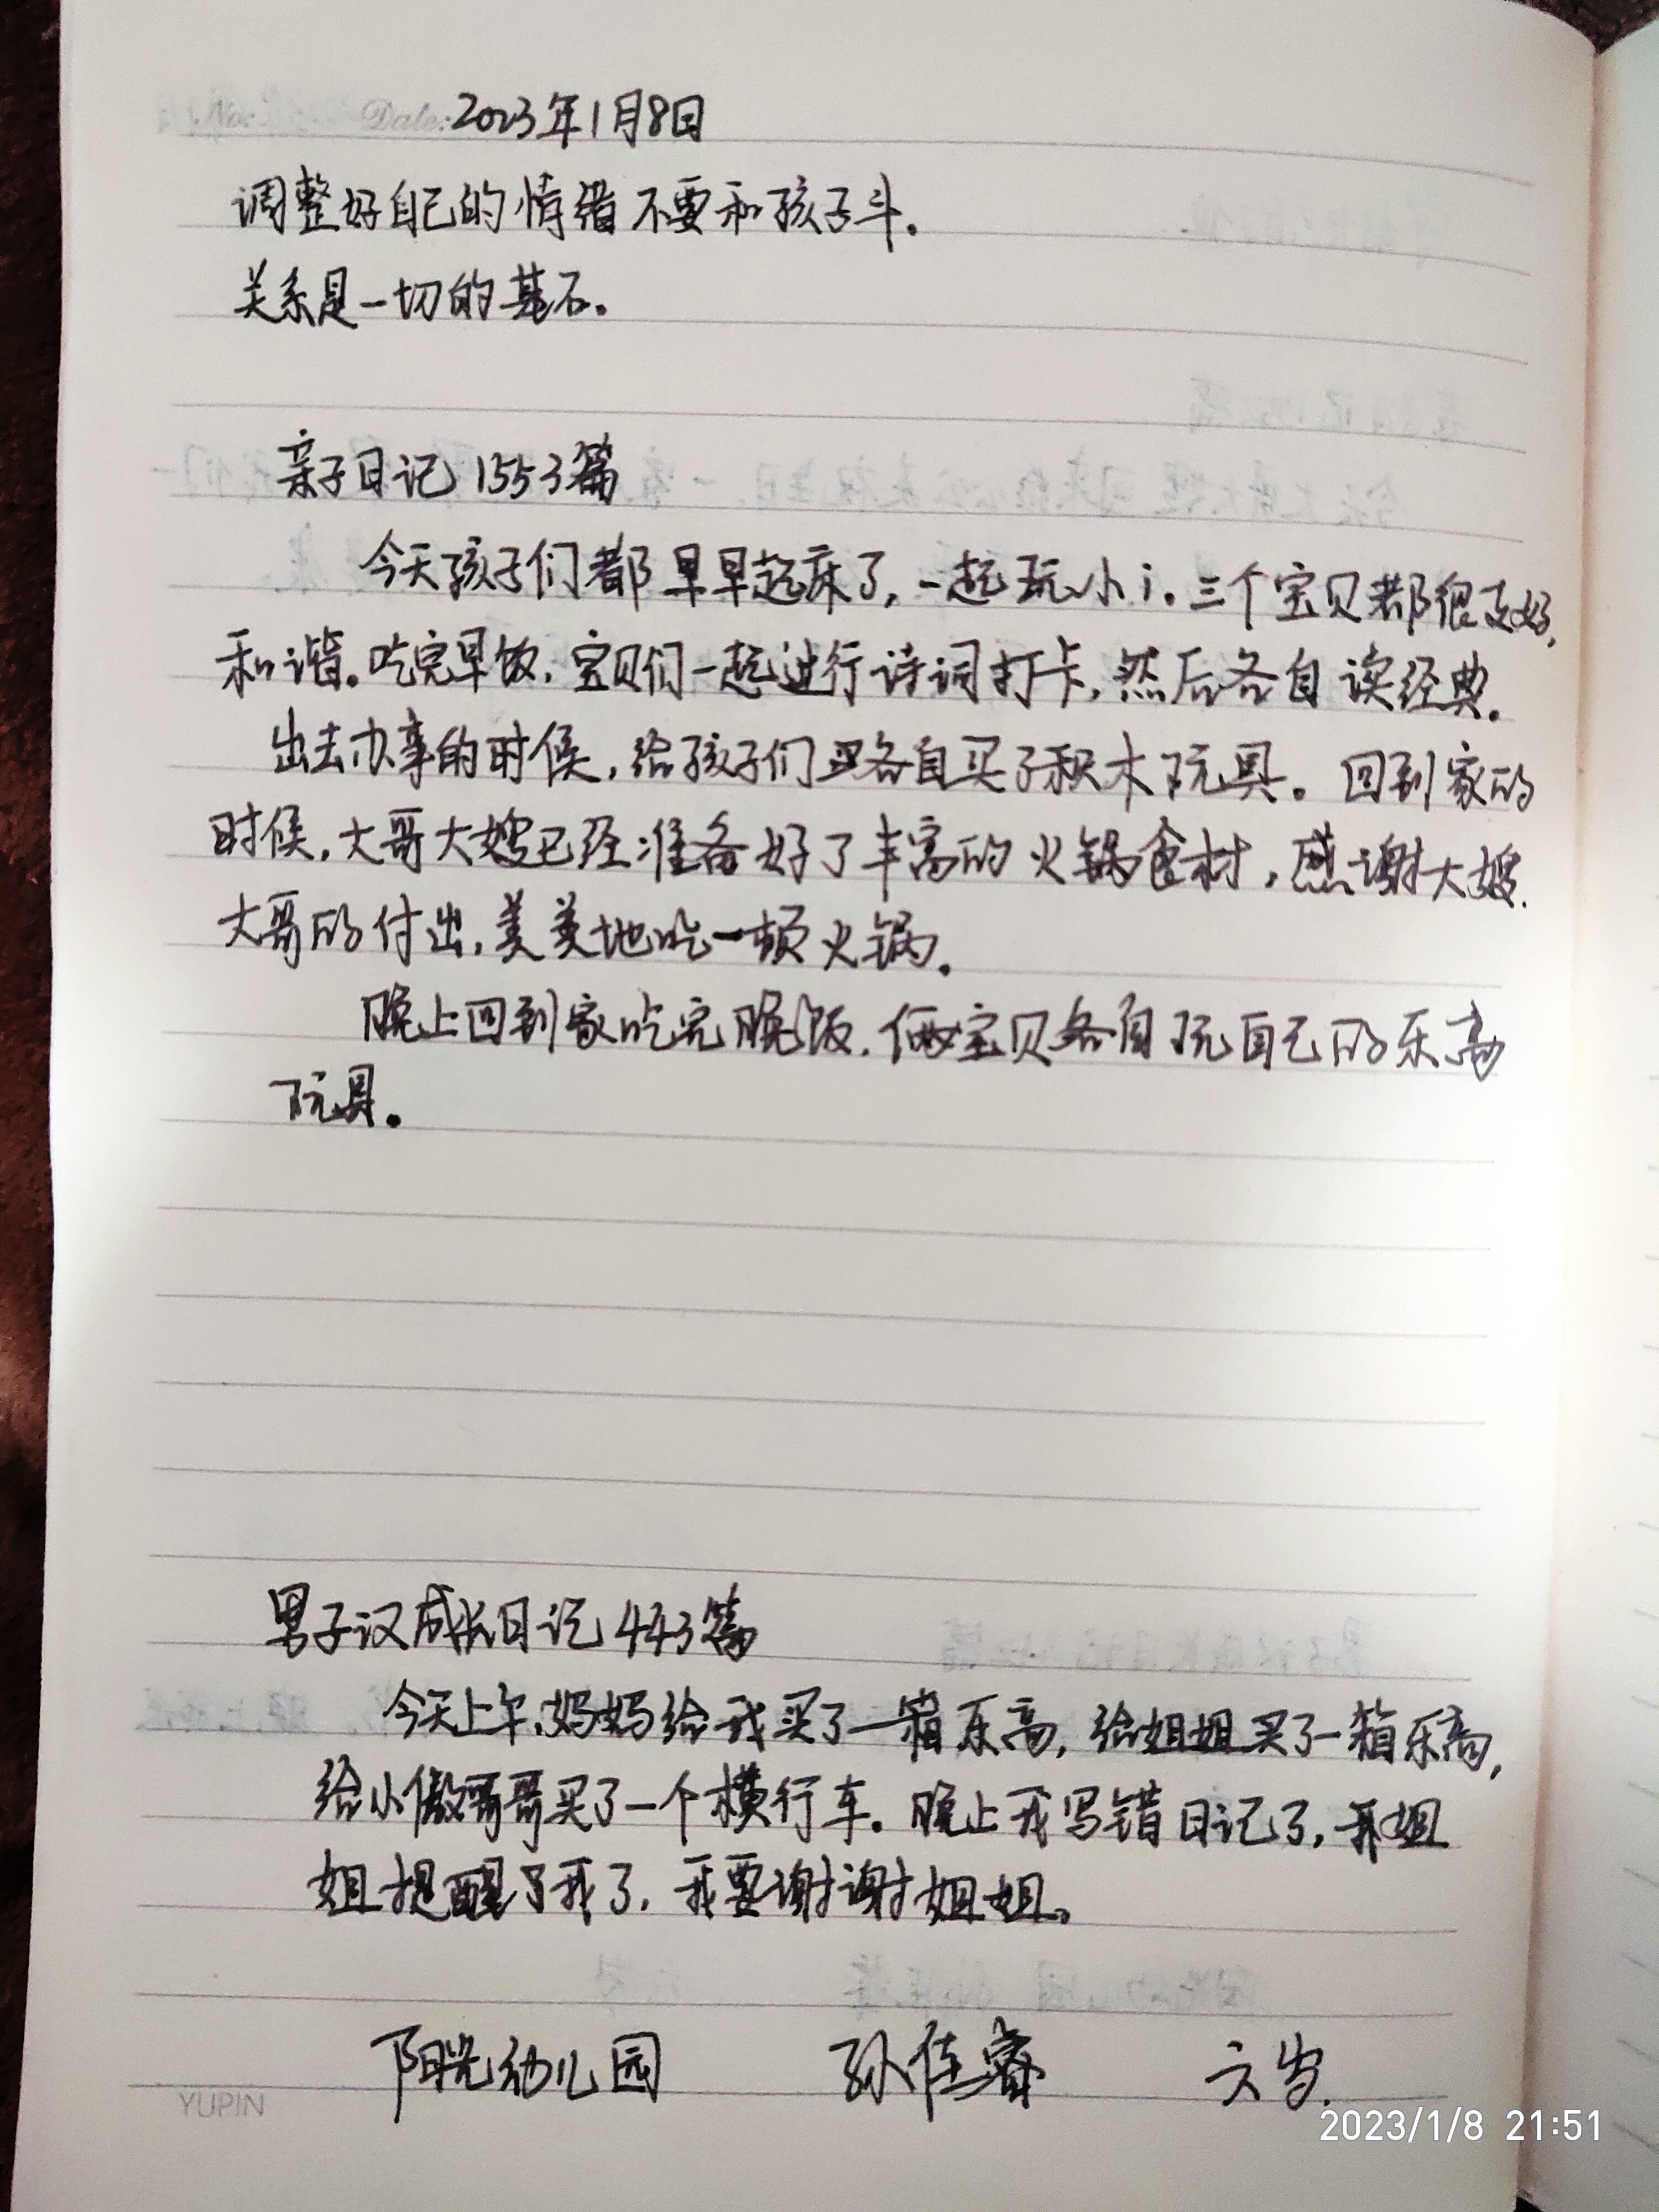 No: Date: 2023年1月8日
调整好自己的情绪不要和孩子斗。
关系是一切的基石。
亲子日记1553篇
今天孩子们都早早起床了,一起玩小i。三个宝贝都很友好,
和谐。吃完早饭,宝贝们一起进行诗词打卡,然后各自读经典。
出去办事的时候,给孩子们各自买了积木玩具。回到家的
时候,大哥大嫂已经准备好了丰富的火锅食材,感谢大嫂.
大哥的付出,美美地吃一顿火锅。
晚上回到家吃完晚饭,俩宝贝各自玩自己的乐高
玩具。
男子汉成长日记443篇
今天上午,妈妈给我买了一箱乐高,给姐姐买了一箱乐高,
给小傲哥哥买了一个横行车。晚上我写错日记了,姐
姐提醒了我了,我要谢谢姐姐。
阳光幼儿园 孙佳睿 六岁.
YUPIN
2023/1/8 21:51